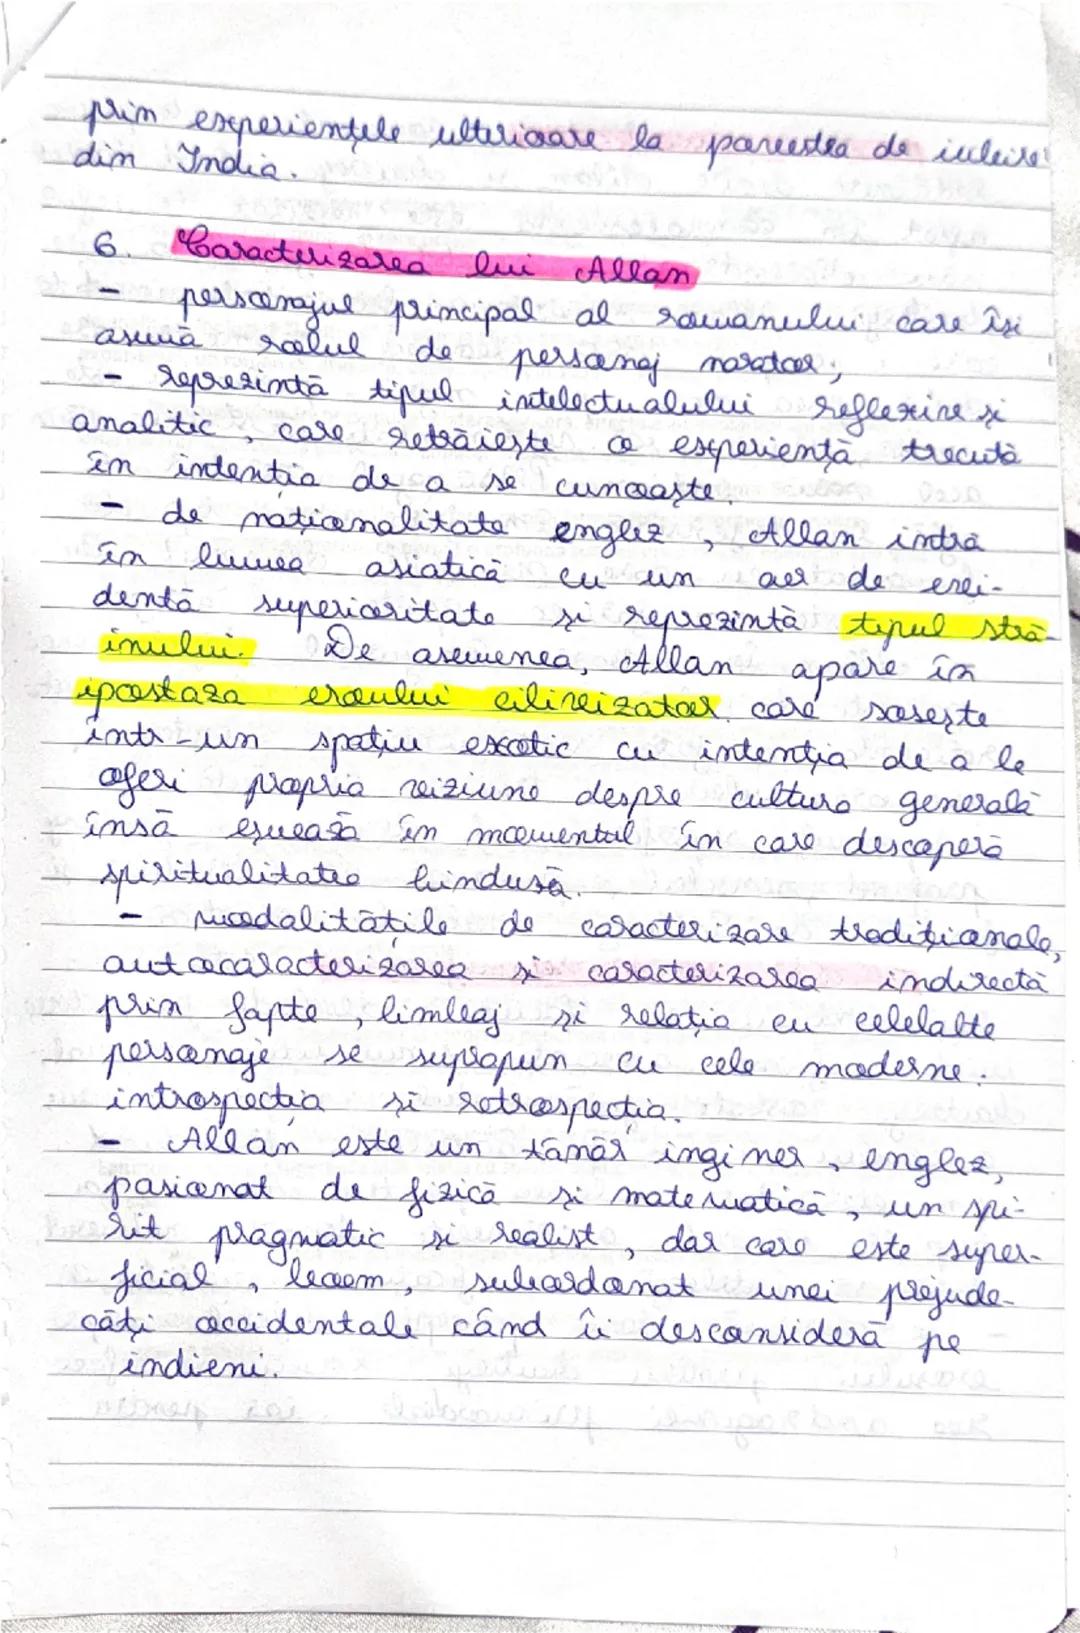 prin experiențele ulterioare la povestea de iubire
din India.
6. Caracterizarea lui Allan
- personajul principal al romanului care își
asumă rolul de personaj narator;
- reprezintă tipul intelectualului reflexiv și
analitic, care retrăiește o experiență trecută
în intenția de a se cunoaște.
- de naționalitate englez, Allan intră
în lumea asiatică cu un aer de evi-
dentă superioritate și reprezintă tipul stră-
inului. De asemenea, Allan apare în
ipostaza eroului civilizator care sosește
într-un spațiu exotic cu intenția de a le
oferi propria viziune despre cultura generală
însă eșuează în momentul în care descoperă
spiritualitatea hindusă.
- modalitățile de caracterizare tradiționale,
autocaracterizarea și caracterizarea indirectă
prin fapte, limbaj și relația cu celelalte
personaje se suprapun cu cele moderne:
introspecția și retrospecția.
- Allan este un tânăr inginer, englez,
pasionat de fizică și matematică, un spi-
rit pragmatic și realist, dar care este super-
ficial, lucem, subordonat unei prejude-
căți occidentale când îi desconsideră pe
indieni.